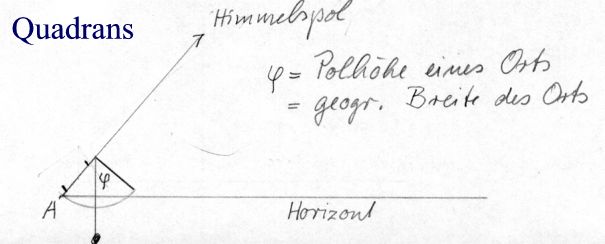 Quadrans
Himmelspol
φ = Polhöhe eines Orts
= geogr. Breite des Orts
φ
A
Horizont